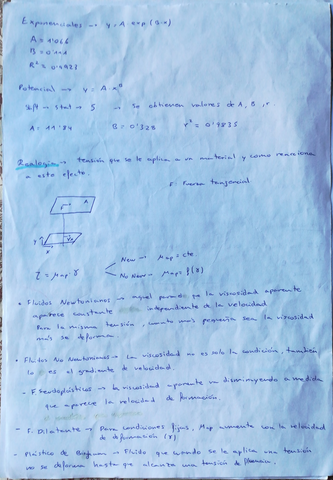 Exponenciales → y = A · exp (B·x)
A = 1'066
R² = 0'9923
Potencial → y = A · x^B
stat → 5 → Se obtienen valores de A, B, r
A = 11'84 B = 0'328 r² = 0'9835
Reología → tensión que se le aplica a un material y como reacciona
a este efecto.
F: Fuerza tangencial
F A
New → μap = cte
τ = μap γ
No New → μap = f(γ)
• Fluidos Newtonianos → aquel para el que la viscosidad aparente
aparece constante independiente de la velocidad.
Para la misma tensión, cuanto más pequeña sea la viscosidad
más se deforma.
• Fluidos No Newtonianos → La viscosidad no es solo la condición, también
lo es el gradiente de velocidad.
- F Pseudoplásticos → la viscosidad aparente va disminuyendo a medida
que aparece la velocidad de formación.
- F. Dilatante → Para condiciones fijas, μap aumenta con la velocidad
de deformación (γ)
- Plástico de Bingham → Fluido que cuando se le aplica una tensión
no se deforma hasta que alcanza una tensión de